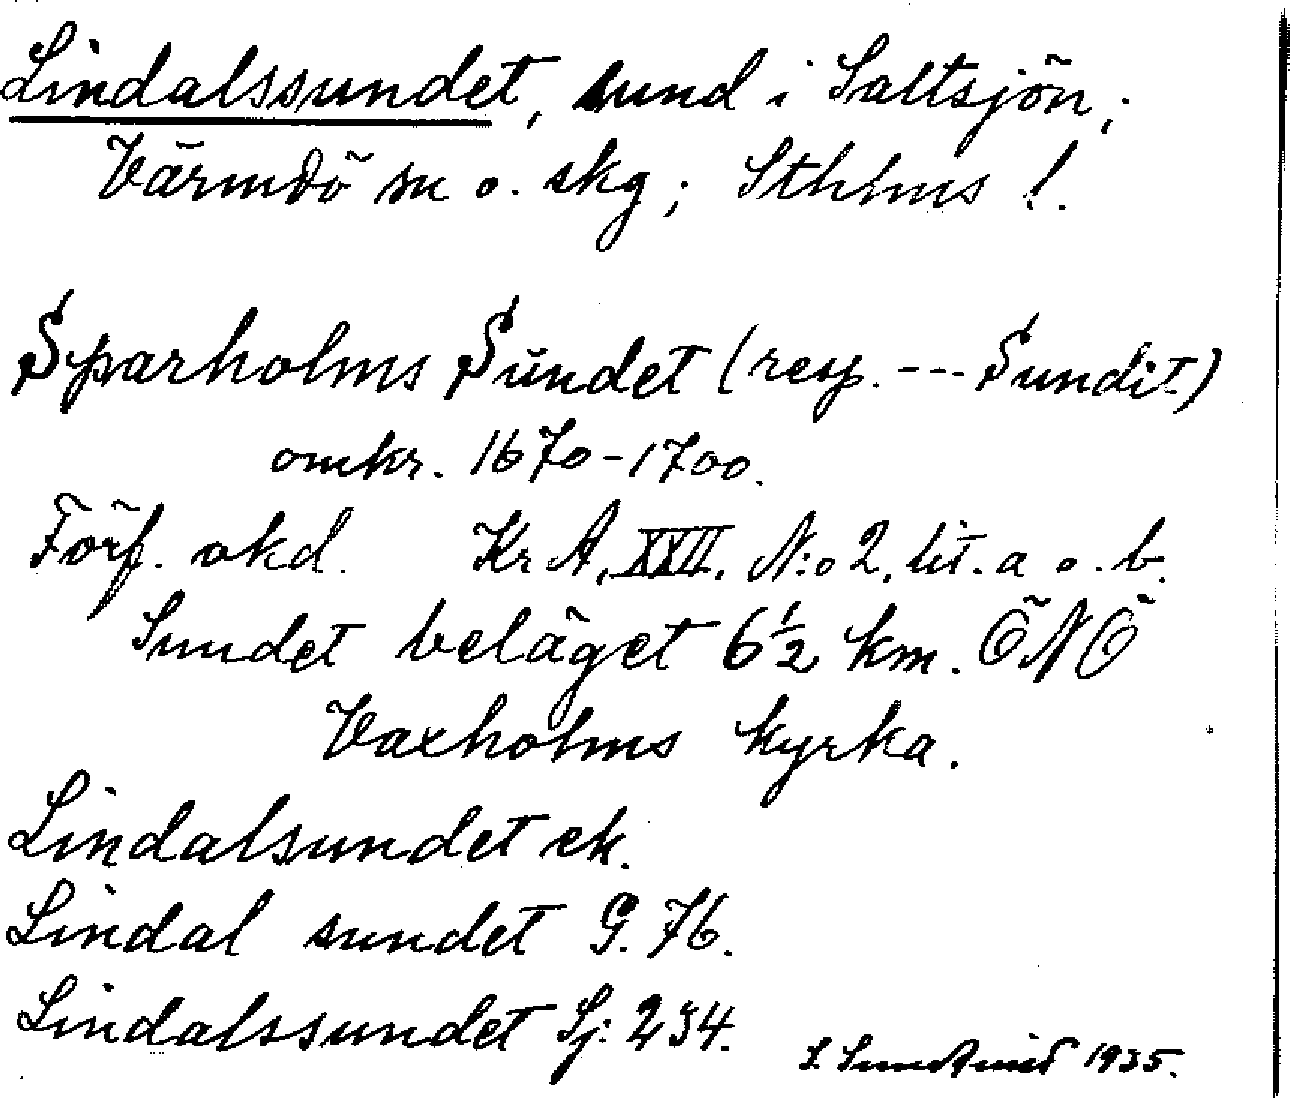 Lindalssundet, sund i Saltsjön;
Värmdö sn o. skg; Sthlms l.
Sparholms Sundet (resp. --- Sundit)
omkr. 1670-1700.
Förf. okd. Kr A, XXII. N:o 2, lit. a o. b.
Sundet beläget 6 1/2 km. ÖNÖ
Vaxholms kyrka.
Lindalsundet ek.
Lindal sundet G. 76.
Lindalssundet Sj: 234.
1935.